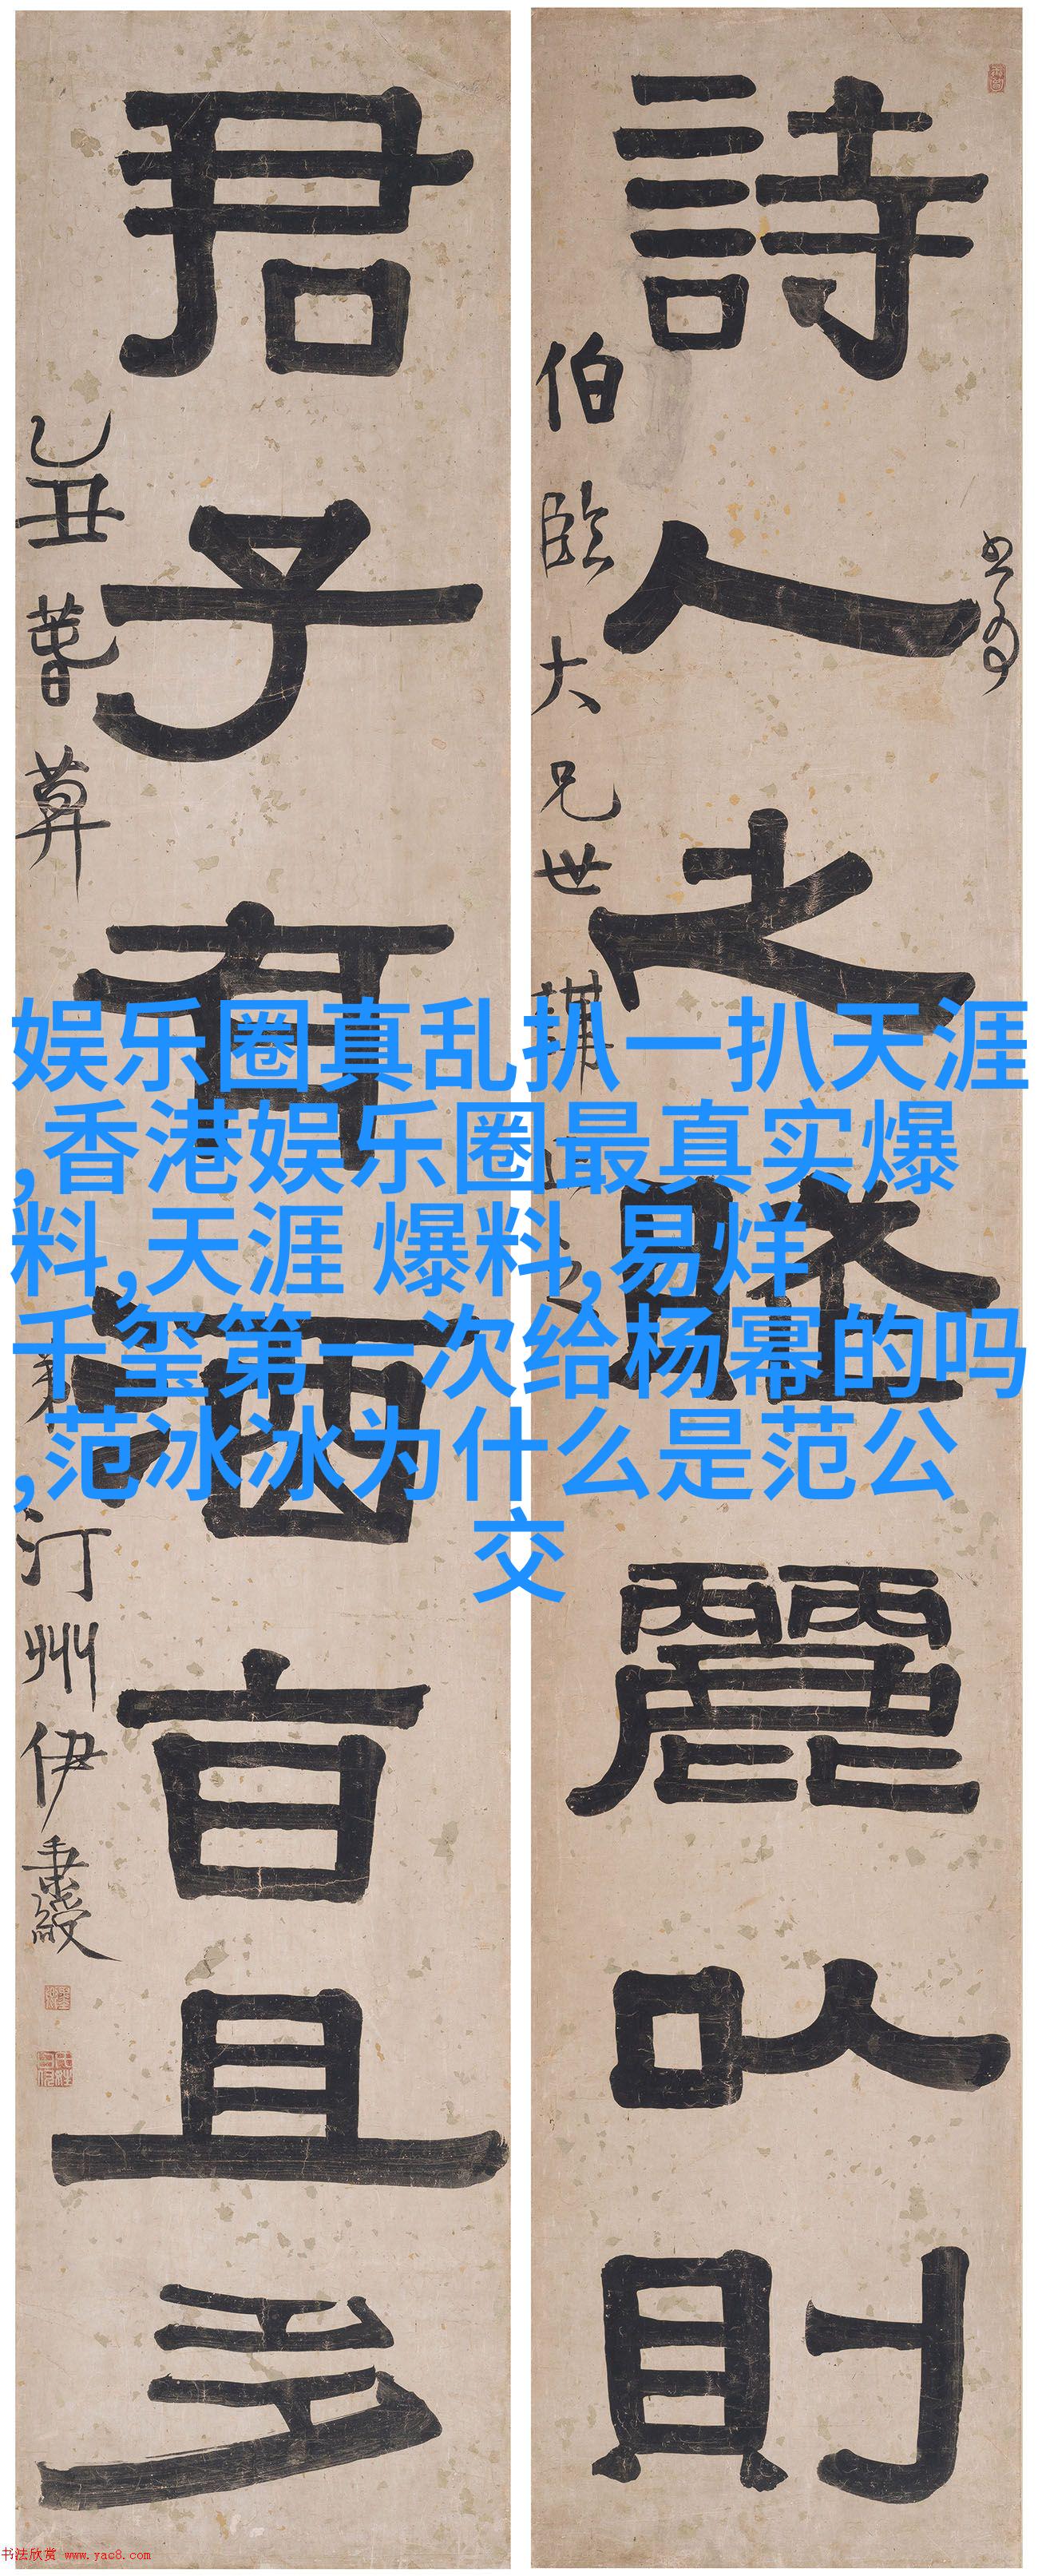 書為
詩人之麗以則
伯臨大兄世講
君子有酒旨且多
乙丑
弟汀州伊秉綬
娱乐圈真乱扒一扒天涯
,香港娱乐圈最真实爆
料,天涯 爆料,易烊
千玺第一次给杨幂的吗
,范冰冰为什么是范公
交
书法欣赏 www.yac8.com